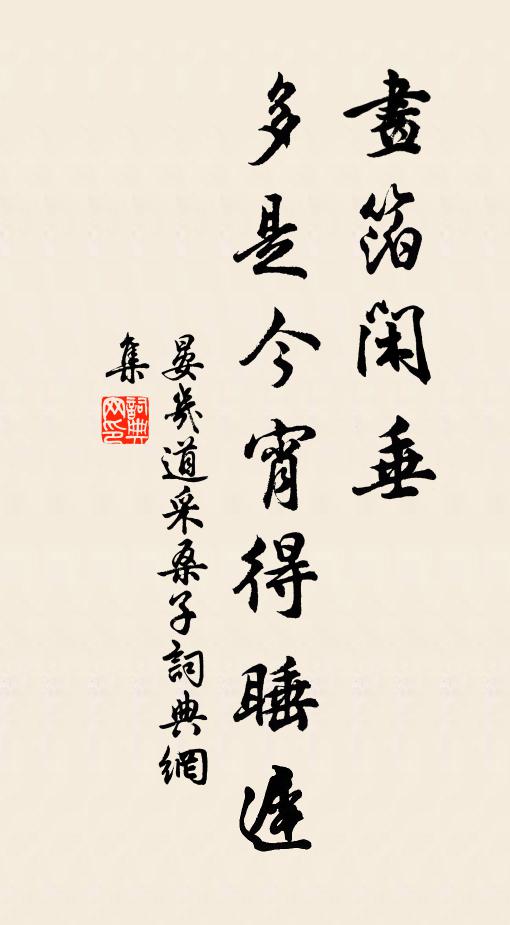 畫箔閑垂
多是今宵得睡遲
晏幾道采桑子詞典網
集
詞典網印